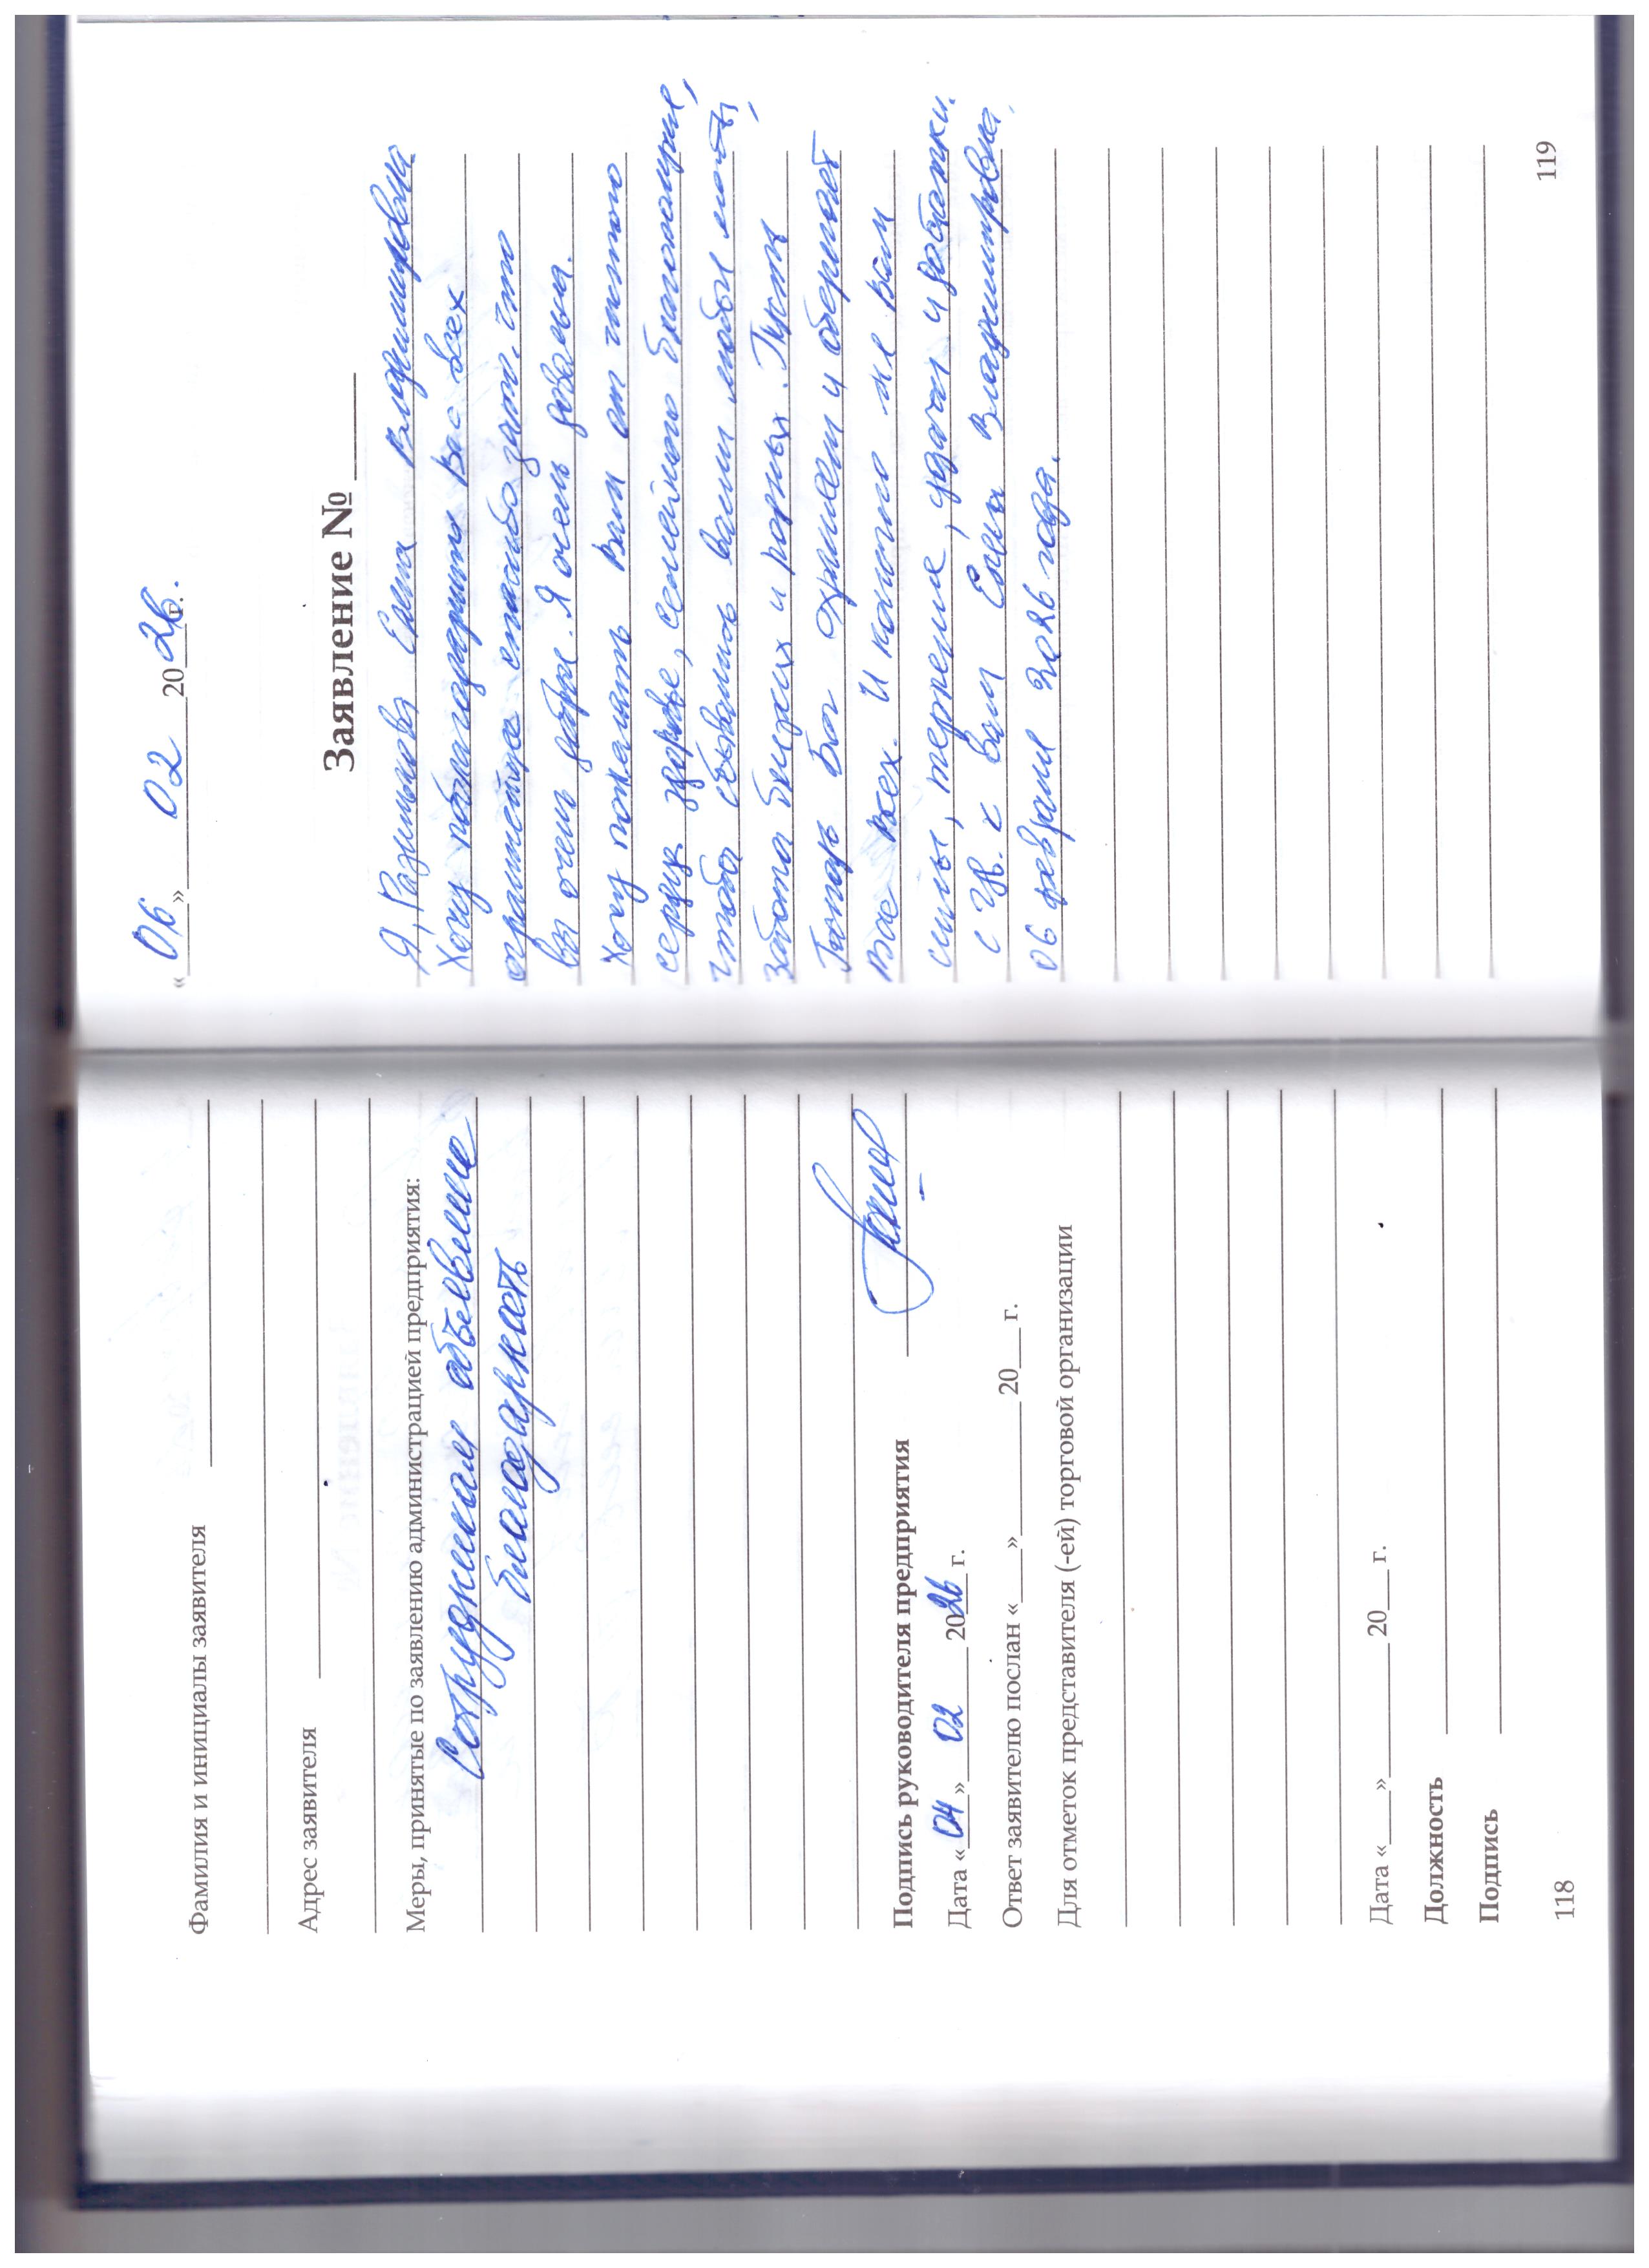 Фамилия и инициалы заявителя
Адрес заявителя
Меры, принятые по заявлению администрацией предприятия:
Сотрудникам объявление
благодарность
Подпись руководителя предприятия
Дата «04» 02 2026 г.
Ответ заявителю послан «___» 20___ г.
Для отметок представителя (-ей) торговой организации
Дата «___» 20___ г.
Должность
Подпись
118
«06» 02 2026 г.
Заявление №
Я, Елена Владимировна
Хочу поблагодарить Вас всех
спасибо зато. что
вы очень добрые. Я очень довольна.
Хочу пожелать Вам от чистого
сердца здоровье, семейного благополучие,
чтобы вами любые
забота близких и родных. Пусть
Бог охраняет и оберегает
Вас всех. И конечно же Вам
силы, терпение, удачи и
с Ув. к вам Елена Владимировна.
06 февраля 2026 года.
119